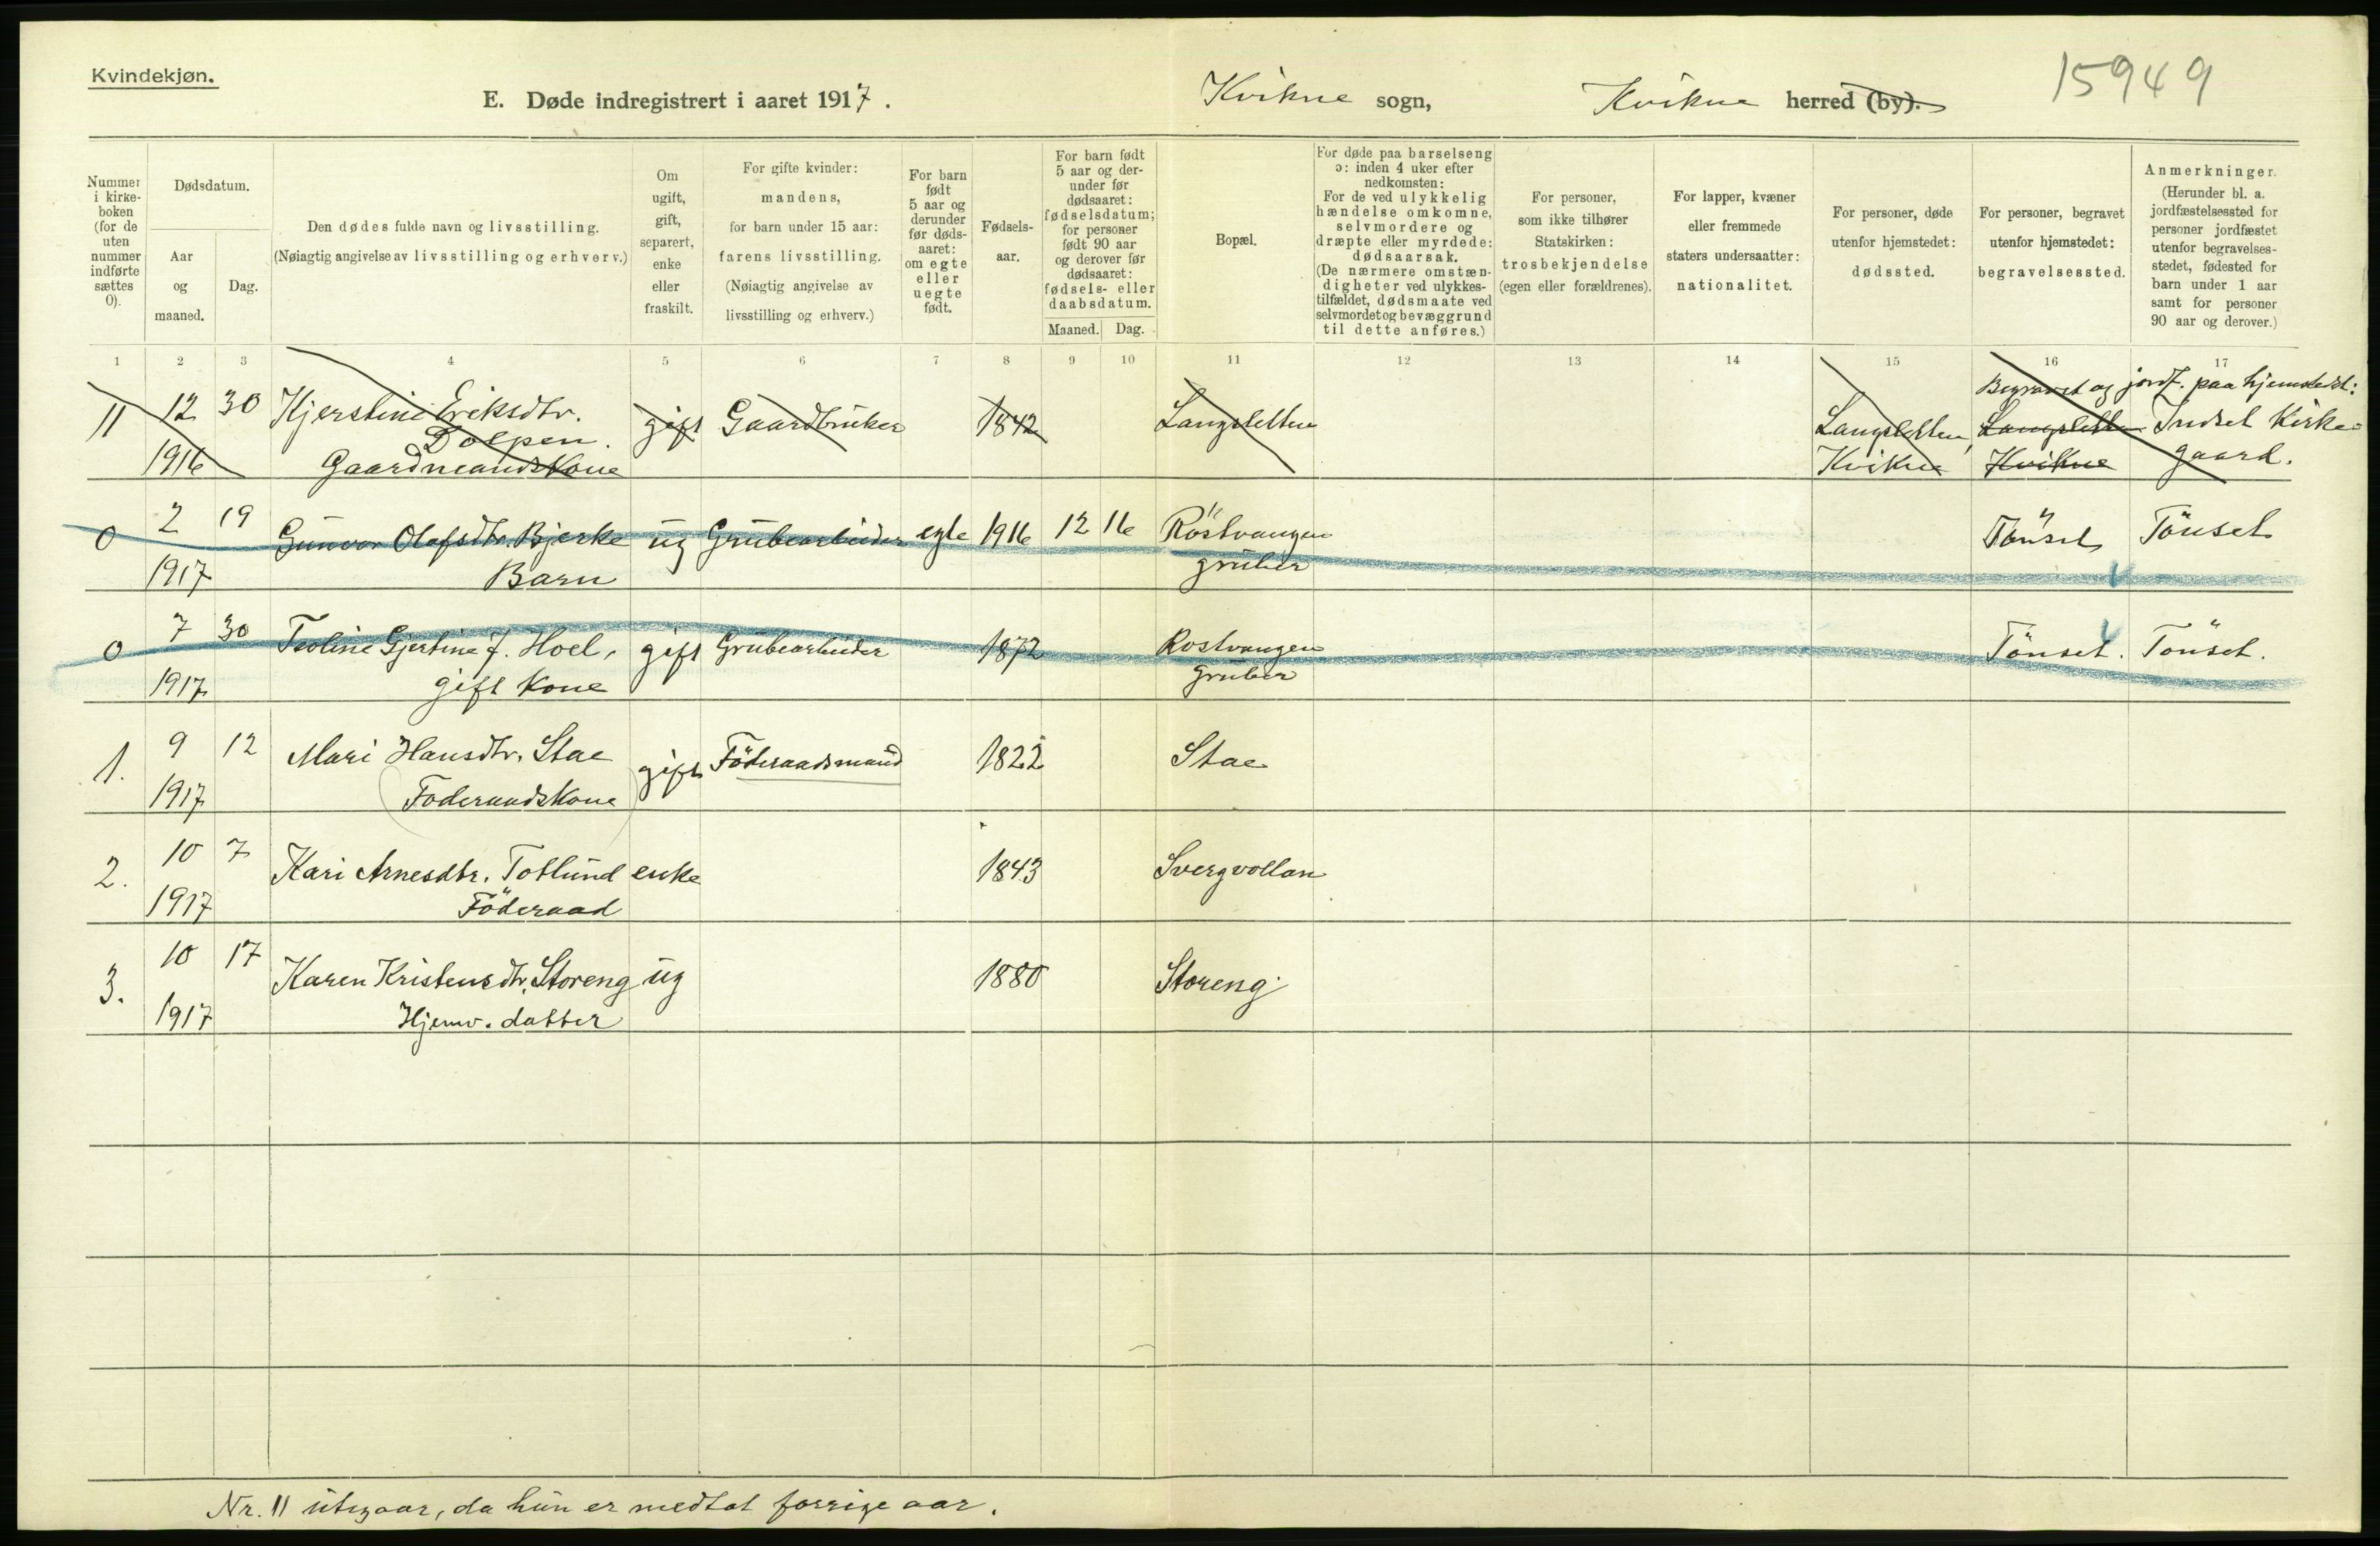 Kvindekjøn.
15949
E. Døde indregistrert i aaret 1917. Kvikne sogn, Kvikne herred (by).
Nummer i kirke-boken (for de uten nummer indførte sættes 0).
Dødsdatum.
Aar og maaned.
Dag.
Den dødes fulde navn og livsstilling.
(Nøiagtig angivelse av livsstilling og erhverv.)
Om ugift, gift, separert, enke eller fraskilt.
For gifte kvinder: mandens, for barn under 15 aar: farens livsstilling.
(Nøiagtig angivelse av livsstilling og erhverv.)
For barn født 5 aar og derunder før døds-aaret: om egte eller uegte født.
Fødsels-aar.
For barn født 5 aar og der-under før dødsaaret: fødselsdatum; for personer født 90 aar og derover før dødsaaret: fødsels- eller daabsdatum.
Maaned. Dag.
Bopæl.
For døde paa barselseng ɔ: inden 4 uker efter nedkomsten: For de ved ulykkelig hændelse omkomne, selvmordere og dræpte eller myrdede: dødsaarsak. (De nærmere omstæn-digheter ved ulykkes-tilfældet, dødsmaate ved selvmordet og bevæggrund til dette anføres.)
For personer, som ikke tilhører Statskirken: trosbekjendelse (egen eller forældrenes).
For lapper, kvæner eller fremmede staters undersaatter: nationalitet.
For personer, døde utenfor hjemstedet: dødssted.
For personer, begravet utenfor hjemstedet: begravelsessted.
Anmerkninger. (Herunder bl. a. jordfæstelsessted for personer jordfæstet utenfor begravelses-stedet, fødested for barn under 1 aar samt for personer 90 aar og derover.)
1 2 3 4 5 6 7 8 9 10 11 12 13 14 15 16 17
Begravet og jordf. paa hjemstedet:
11 12 30 Kjerstine Eriksdtr. gift Gaardbruker 1842 Langsletten Langsletten, Langsletten Indset Kirke-
Dolpen.
1916 Gaardmandskone Kvikne Kvikne gaard.
0 2 19 Gunvor Olafsdtr. Bjerke ug Grubearbeider egte 1916 12 16 Röstvangen Tönset Tönset
1917 Barn gruber
0 7 30 Teoline Gjertine f. Hoel, gift Grubearbeider 1872 Rostvangen Tönset. Tönset.
1917 gift Kone Gruber
1. 9 12 Mari Hansdtr. Stae gift Föderaadsmand 1822 Stae
1917 Foderaadskone
2. 10 7 Kari Arnesdtr. Totlund enke 1843 Svergvollan
1917 Föderaad
3. 10 17 Karen Kristensdtr. Storeng ug 1880 Storeng
1917 Hjemv. datter
Nr. 11 utgaar, da hun er medtat forrige aar.